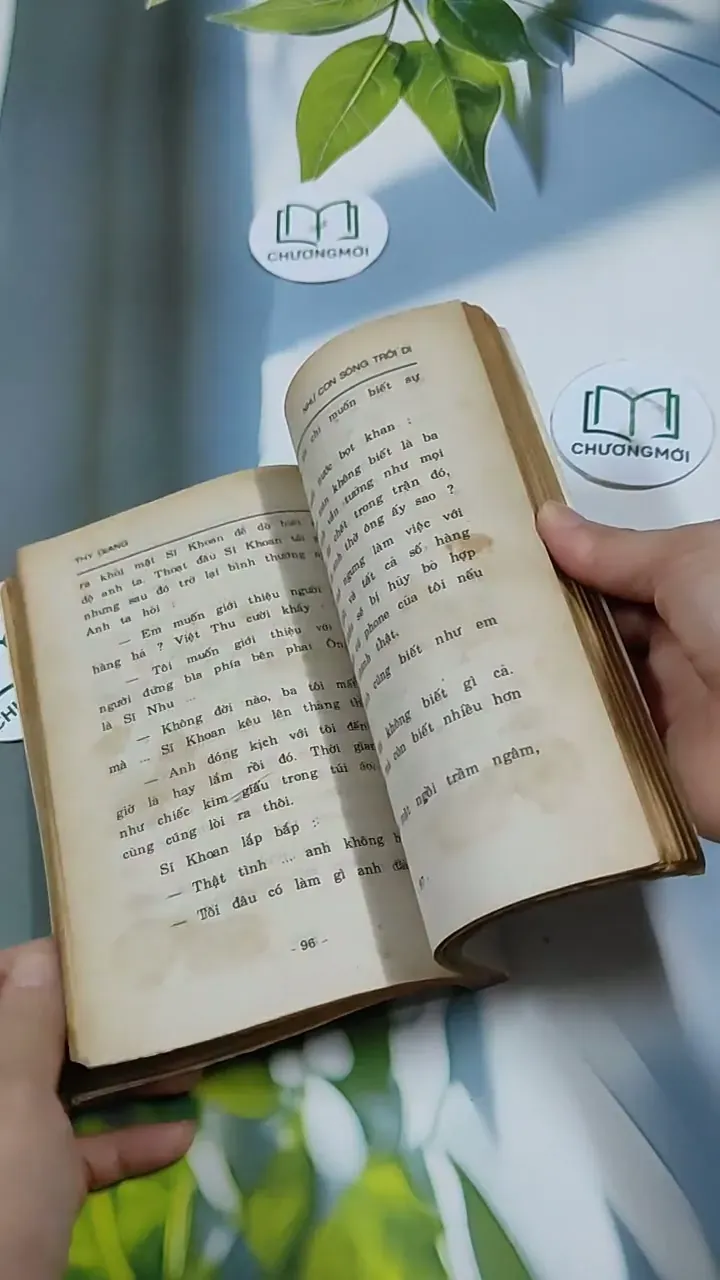 CHƯƠNGMỚI
CHƯƠNGMỚI
THY GIANG
ra khỏi mặt Sĩ Khoan để dò
độ anh ta. Thoạt đầu Sĩ Khoan tái
nhưng sau đó trở lại bình thường
Anh ta hỏi :
— Em muốn giới thiệu người
hàng hả ? Việt Thu cười khẩy
— Tôi muốn giới thiệu với
người đứng bìa phía bên phải
là Sĩ Nhu ...
— Không đời nào, ba tôi
mà ... Sĩ Khoan kêu lên thảng
— Anh đóng kịch với tôi đến
giờ là hay lắm rồi đó. Thời gian
như chiếc kim giấu trong túi áo,
cùng cũng lòi ra thôi.
Sĩ Khoan lắp bắp :
— Thật tình ... anh không
— Tôi đâu có làm gì anh
- 96 -
NHƯ CON SÔNG TRÔI ĐI
chỉ muốn biết sự
nước bọt khan :
không biết là ba
vẫn tưởng như mọi
chết trong trận đó,
thờ ông ấy sao ?
ngưng làm việc với
và tất cả số hàng
sẽ bị hủy bỏ hợp
phone của tôi nếu
thật.
cũng biết như em
không biết gì cả.
còn biết nhiều hơn
ngồi trầm ngâm,